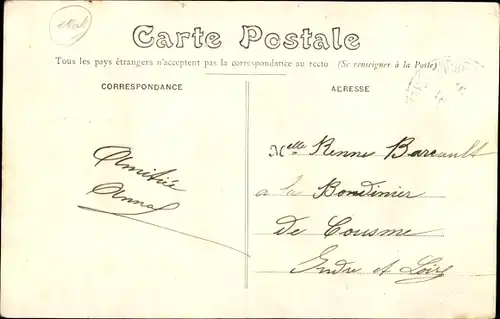 Carte Postale
Tous les pays étrangers n'acceptent pas la correspondance au recto (Se renseigner à la Poste)
CORRESPONDANCE
ADRESSE
Amitiée
Anna
Melle Renne Barcault
a la Bondinier
De Cousme
Indre et Loire